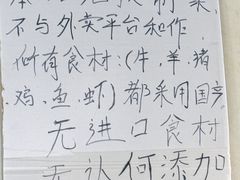 不与外卖平台和作
所有食材:(牛,羊,猪
.鸡,鱼,虾)都采用国产
无进口食材
无认何添加